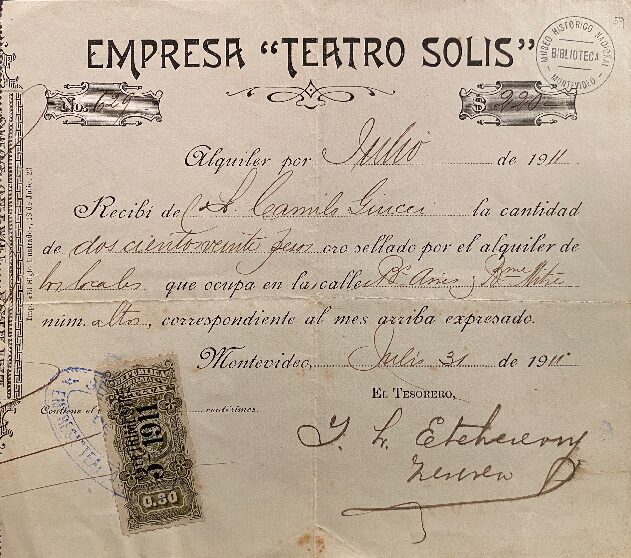 EMPRESA "TEATRO SOLIS"
MUSEO HISTÓRICO NACIONAL
BIBLIOTECA
MONTEVIDEO
Nos. 629
$ 220
Alquiler por Julio de 1911
Recibí de Camilo Giucci la cantidad
de dos ciento veinte pesos oro sellado por el alquiler de
los locales que ocupa en las calles Bs. Aires y Bme. Mitre
núm. altos, correspondiente al mes arriba expresado.
Montevideo, Julio 31 de 1911
EL TESORERO,
Contiene el centésimos.
1911
0.80